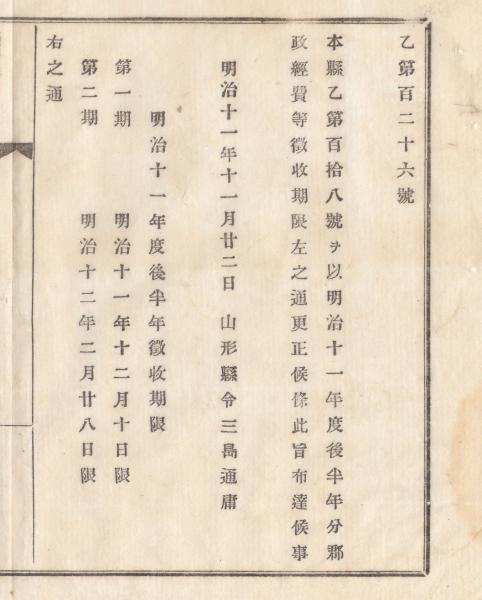 乙第百二十六號
本縣乙第百拾八號ヲ以明治十一年度後半年分郡
政經費等徵收期限左之通更正候條此旨布達候事
明治十一年十一月廿二日 山形縣令三島通庸
明治十一年度後半年徵收期限
第一期 明治十一年十二月十日限
第二期 明治十二年二月廿八日限
右之通